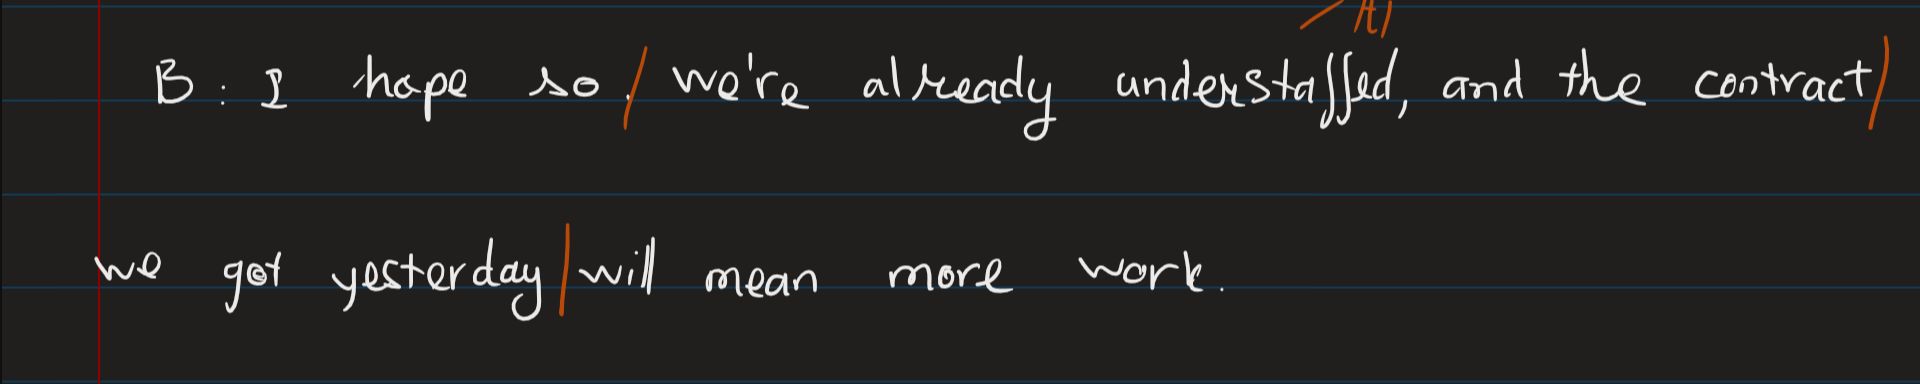 B : I hope so. / we're already understaffed, and the contract /
we got yesterday / will mean more work.